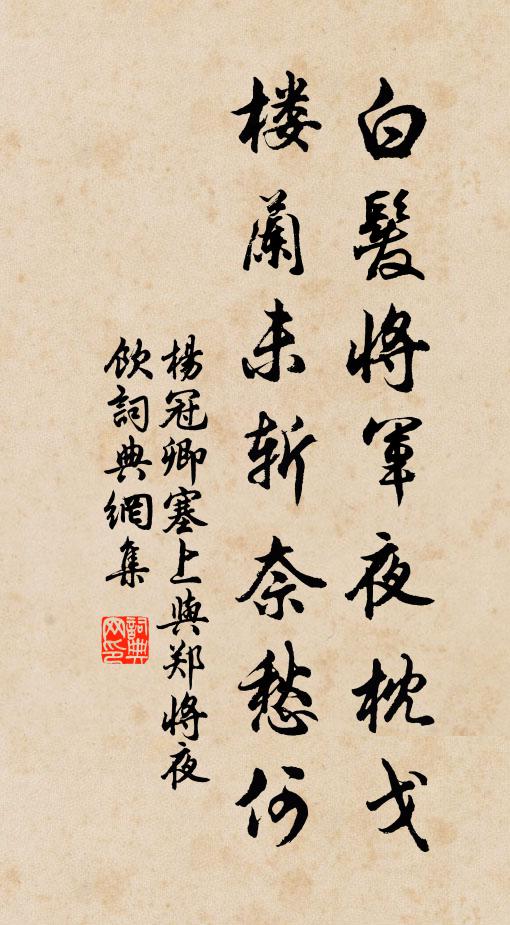 白髮將軍夜枕戈
楼蘭未斬奈愁何
楊冠卿塞上與郑將夜
飲詞典網集
詞典網印